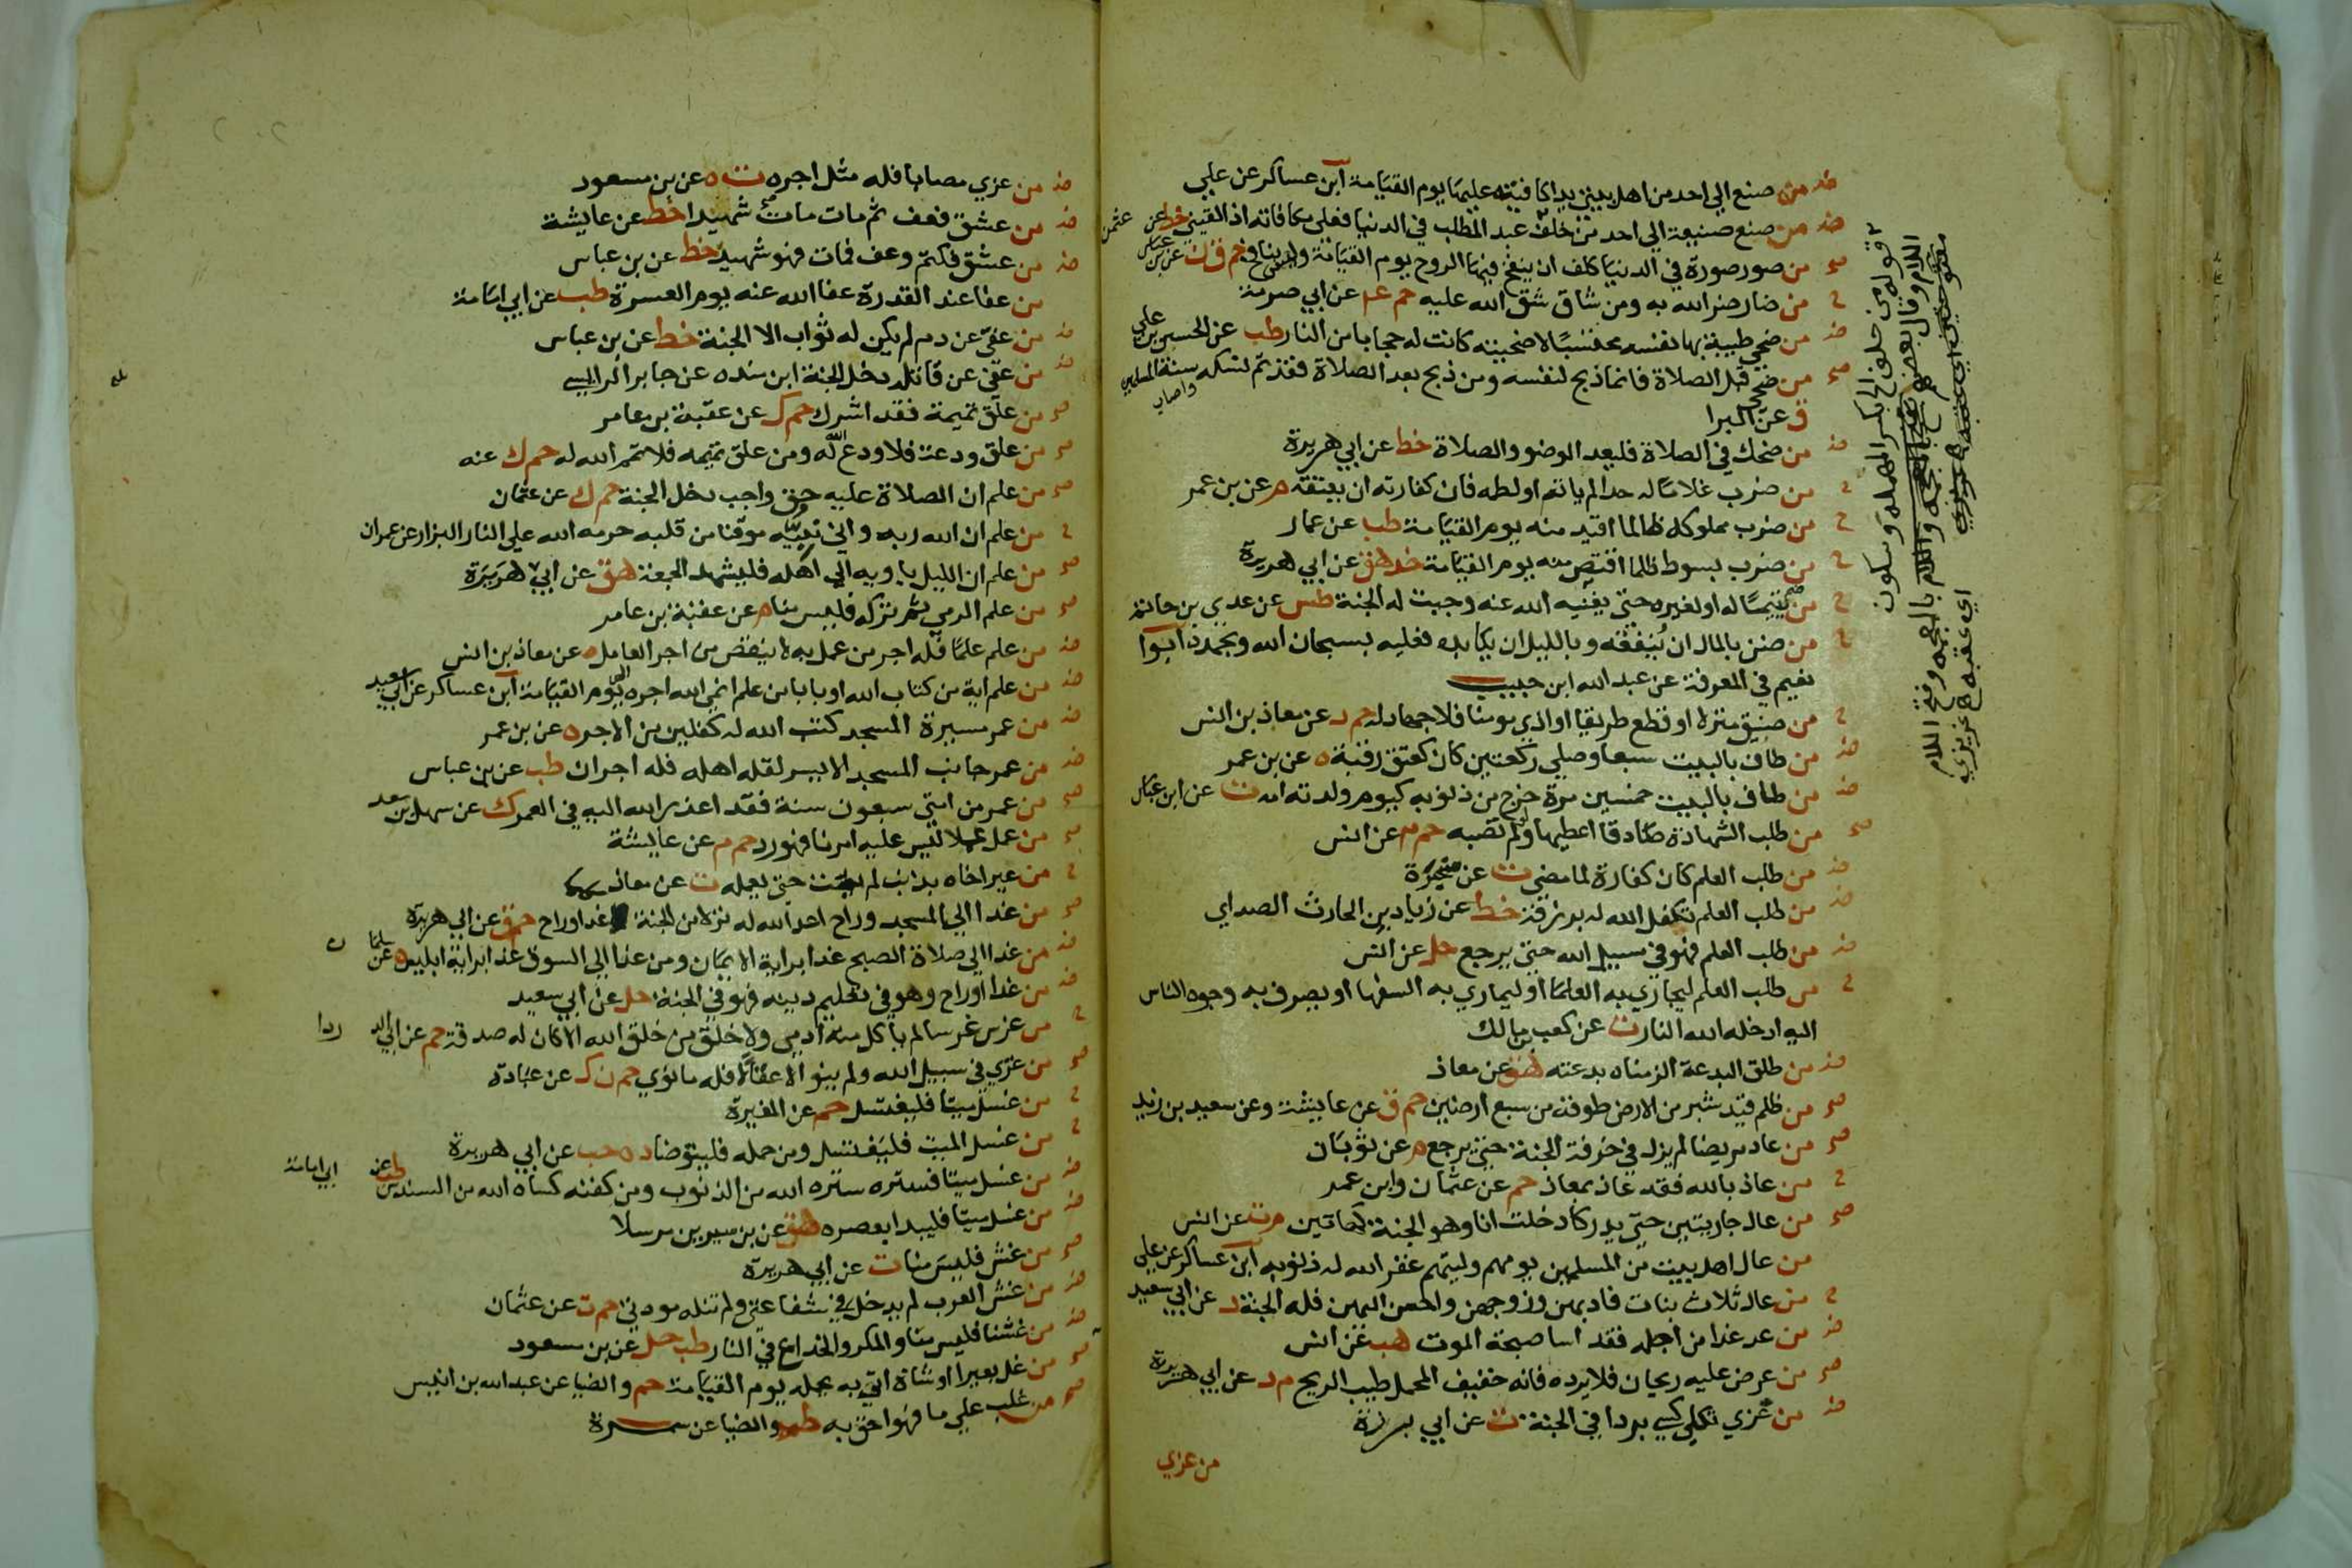 ض من صنع الي احد من اهل بيتي يدا كافيته عليها يوم القيامة ابن عساكر عن علي
ض من صنع صنيعة الي احد من خلف عبد المطلب في الدنيا فعلي مكافاته اذا لقيني خط عن عثمن
صح من صور صورة في الدنيا كلف ان ينفخ فيها الروح يوم القيامة وليس بنافخ حم ق ن عن بن عباس
ح من ضار ضر الله به ومن شاق شق الله عليه حم عم عن ابي صرمة
ض من ضحي طيبة بها نفسه محتسبا لاضحيته كانت له حجابا من النار طب عن الحسن بن علي
صح من ضحي قبل الصلاة فانما ذبح لنفسه ومن ذبح بعد الصلاة فقد تم نسكه واصاب سنة المسلمين
ق عن البرا
ض من ضحك في الصلاة فليعد الوضو والصلاة خط عن ابي هريرة
ح من ضرب غلاما له حدا لم ياته او لطمه فان كفارته ان يعتقه م عن بن عمر
ح من ضرب مملوكه ظالما اقيد منه يوم القيامة طب عن عمار
ح من ضرب بسوط ظلما اقتص منه يوم القيامة خد هق عن ابي هريرة
ح من ضم يتيما له او لغيره حتي يغنيه الله عنه وجبت له الجنة طس عن عدي بن حاتم
ح من ضن بالمال ان ينفقه وبالليل ان يكابده فعليه بسبحان الله وبحمده ابوا
نعيم في المعرفة عن عبد الله ابن حبيب
ح من ضيق منزلا او قطع طريقا او اذي مومنا فلا جهاد له حم د عن معاذ بن انس
ض من طاف بالبيت سبعا وصلي ركعتين كان كعتق رقبة ه عن بن عمر
ض من طاف بالبيت خمسين مرة خرج من ذنوبه كيوم ولدته امه ت عن ابن عباس
صح من طلب الشهادة صادقا اعطيها ولو لم تصبه حم م عن انس
ض من طلب العلم كان كفارة لما مضي ت عن سخبرة
ض من طلب العلم تكفل الله له برزقه خط عن زياد بن الحارث الصداي
ض من طلب العلم فهو في سبيل الله حتي يرجع حل عن انس
ح من طلب العلم ليجازي به العلما او ليماري به السفها او يصرف به وجوه الناس
اليه ادخله الله النار ت عن كعب بن مالك
ض من طلق البدعة الزمناه بدعته هق عن معاذ
صح من ظلم قيد شبر من الارض طوقه من سبع ارضين حم ق عن عايشة وعن سعيد بن زيد
صح من عاد مريضا لم يزل في خرفة الجنة حتي يرجع م عن ثوبان
ح من عاذ بالله فقد عاذ بمعاذ حم عن عثمان وابن عمر
صح من عال جاريتين حتي يدركا دخلت انا وهو الجنة كهاتين م ت عن انس
من عال اهل بيت من المسلمين يومهم وليلتهم غفر الله له ذنوبه ابن عساكر عن علي
ح من عال ثلاث بنات فادبهن وزوجهن واحسن اليهن فله الجنة د عن ابي سعيد
ض من عد غدا من اجله فقد اسا صحبة الموت هب عن انس
صح من عرض عليه ريحان فلا يرده فانه خفيف المحمل طيب الريح م د عن ابي هريرة
ض من عزي ثكلي كسي بردا في الجنة ت عن ابي برزة
من عزي
قوله من خلف الخ بكسر المهملة وسكون
اللام وقال بعضهم بفتح المعجمة واللام
بالمعجمة وفتح اللام
اي عقبه ه عزيزي
ض من عزي مصابا فله مثل اجره ت ه عن بن مسعود
ض من عشق فعف ثم مات مات شهيدا خط عن عايشة
ض من عشق فكتم وعف فمات فهو شهيد خط عن بن عباس
من عفا عند القدرة عفا الله عنه يوم العسرة طب عن ابي امامة
ض من عفي عن دم لم يكن له ثواب الا الجنة خط عن بن عباس
ض من عفي عن قاتله دخل الجنة ابن منده عن جابر الراسبي
صح من علق تميمة فقد اشرك حم ك عن عقبة بن عامر
صح من علق ودعة فلا ودع الله له ومن علق تميمه فلا تمم الله له حم ك عنه
صح من علم ان الصلاة عليه حق واجب دخل الجنة حم ك عن عثمان
ح من علم ان الله ربه واني نبيه موقنا من قلبه حرمه الله علي النار البزار عن عمران
صح من علم ان الليل ياويه الي اهله فليشهد الجمعة هق عن ابي هريرة
صح من علم الرمي ثم تركه فليس منا م عن عقبة بن عامر
ض من علم علما فله اجر من عمل به لا ينقص من اجر العامل ه عن معاذ بن انس
ض من علم اية من كتاب الله او بابا من علم انمي الله اجره الي يوم القيامة ابن عساكر عن ابي سعيد
ض من عمر ميسرة المسجد كتب الله له كفلين من الاجر ه عن بن عمر
ض من عمر جانب المسجد الايسر لقلة اهله فله اجران طب عن بن عباس
صح من عمر من امتي سبعون سنة فقد اعذر الله اليه في العمر ك عن سهل بن سعد
صح من عمل عملا ليس عليه امرنا فهو رد حم م عن عايشة
ح من عير اخاه بذنب لم يمت حتي يعمله ت عن معاذ
صح من غدا الي المسجد وراح اعد الله له نزلا من الجنة غدا وراح حم ق عن ابي هريرة
ض من غدا الي صلاة الصبح غدا براية الايمان ومن غدا الي السوق غدا براية ابليس ه عن سلمان
ض من غدا وراح وهو في تعليم دينه فهو في الجنة حل عن ابي سعيد
ح من غرس غرسا لم ياكل منه ادمي ولا خلق من خلق الله الا كان له صدقة حم عن ابي الدردا
صح من غزي في سبيل الله ولم ينو الا عقالا فله ما نوي حم ن ك عن عبادة
ح من غسل ميتا فليغتسل حم عن المغيرة
ح من غسل الميت فليغتسل ومن حمله فليتوضا د ه حب عن ابي هريرة
ض من غسل ميتا فستره ستره الله من الذنوب ومن كفنه كساه الله من السندس طب عن ابي امامة
ض من غسل ميتا فليبدا بعصره هق عن بن سيرين مرسلا
صح من غش فليس منا ت عن ابي هريرة
ض من غش العرب لم يدخل في شفاعتي ولم تنله مودتي حم ت عن عثمان
ض من غشنا فليس منا والمكر والخداع في النار طب حل عن بن مسعود
صح من غل بعيرا او شاة اتي به يحمله يوم القيامة حم والضيا عن عبد الله بن انيس
صح من غلب علي ما فهو احق به طب والضيا عن سمرة